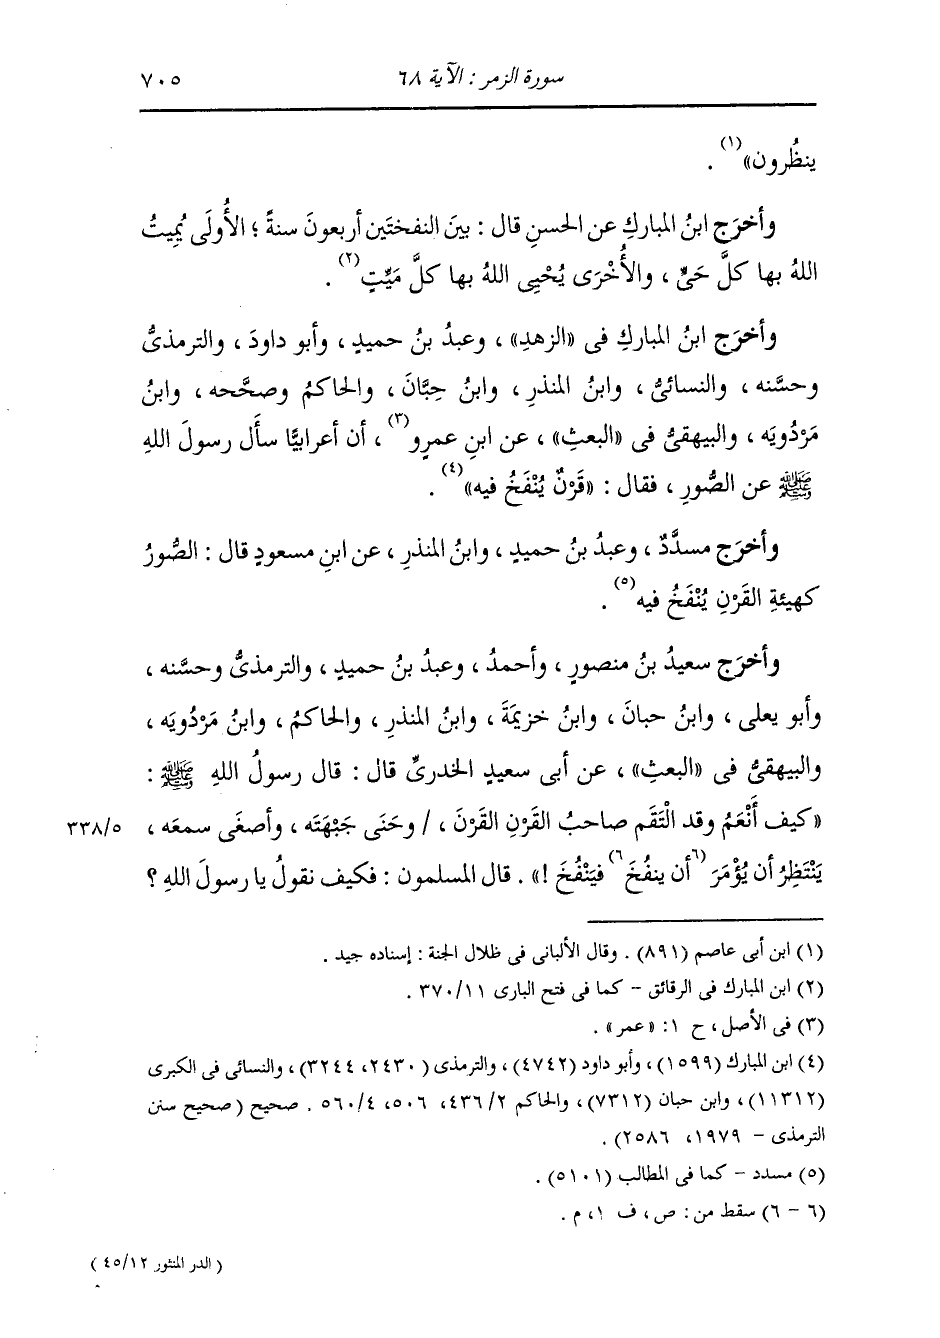 سورة الزمر : الآية ٦٨ ٧٠٥
ينظُرون»(١) .
وأخرَج ابنُ المباركِ عن الحسنِ قال : بينَ النفختَين أربعونَ سنةً ؛ الأُولَى يُمِيتُ
اللهُ بها كلَّ حَىٍّ ، والأُخْرَى يُحْيِى اللهُ بها كلَّ مَيِّتٍ(٢) .
وأخرَج ابنُ المباركِ فى «الزهدِ» ، وعبدُ بنُ حميدٍ ، وأبو داودَ ، والترمذىُّ
وحسَّنه ، والنسائىُّ ، وابنُ المنذرِ ، وابنُ حِبَّانَ ، والحاكمُ وصحَّحه ، وابنُ
مَرْدُويَه ، والبيهقىُّ فى «البعثِ» ، عن ابنِ عمرٍو(٣) ، أن أعرابيًّا سأَل رسولَ اللهِ
ﷺ عن الصُّورِ ، فقال : «قَرْنٌ يُنْفَخُ فيه»(٤) .
وأخرَج مسدَّدٌ ، وعبدُ بنُ حميدٍ ، وابنُ المنذرِ ، عن ابنِ مسعودٍ قال : الصُّورُ
كهيئةِ القَرْنِ يُنْفَخُ فيه(٥) .
وأخرَج سعيدُ بنُ منصورٍ ، وأحمدُ ، وعبدُ بنُ حميدٍ ، والترمذىُّ وحسَّنه ،
وأبو يعلى ، وابنُ حبانَ ، وابنُ خزيمَةَ ، وابنُ المنذرِ ، والحاكمُ ، وابنُ مَرْدُويَه ،
والبيهقىُّ فى «البعثِ» ، عن أبى سعيدٍ الخدرىِّ قال : قال رسولُ اللهِ ﷺ :
«كيف أَنْعَمُ وقد الْتَقَم صاحبُ القَرْنِ القَرْنَ ، / وحَنَى جَبْهَتَه ، وأصغَى سمعَه ، ٣٣٨/٥
يَنْتَظِرُ أن يُؤْمَرَ (٦أن ينفُخَ٦) فيَنْفُخَ !» . قال المسلمون : فكيف نقولُ يا رسولَ اللهِ ؟
(١) ابن أبى عاصم (٨٩١) . وقال الألبانى فى ظلال الجنة : إسناده جيد .
(٢) ابن المبارك فى الرقائق – كما فى فتح البارى ٣٧٠/١١ .
(٣) فى الأصل ، ح ١ : «عمر» .
(٤) ابن المبارك (١٥٩٩) ، وأبو داود (٤٧٤٢) ، والترمذى (٢٤٣٠، ٣٢٤٤) ، والنسائى فى الكبرى
(١١٣١٢) ، وابن حبان (٧٣١٢) ، والحاكم ٤٣٦/٢، ٥٠٦، ٥٦٠/٤ . صحيح (صحيح سنن
الترمذى – ١٩٧٩، ٢٥٨٦) .
(٥) مسدد – كما فى المطالب (٥١٠١) .
(٦ – ٦) سقط من : ص ، ف ١ ، م .
( الدر المنثور ٤٥/١٢ )